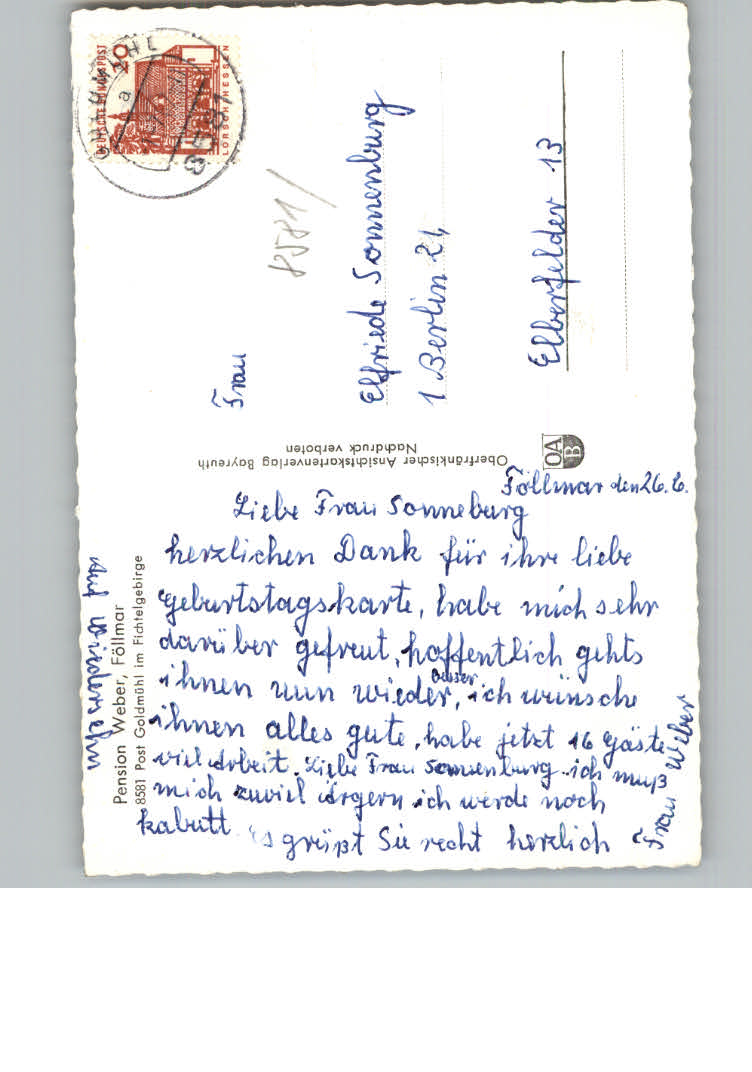 DEUTSCHE BUNDESPOST
20
LORSCH/HESSEN
a
8581
8581/
Frau
Elfriede Sonnenburg
1 Berlin 21,
Elberfelder 13
Oberfränkischer Ansichtskartenverlag Bayreuth
Nachdruck verboten
OA
B
Pension Weber, Föllmar
8581 Post Goldmühl im Fichtelgebirge
Föllmar den 26. 6.
Liebe Frau Sonneburg
herzlichen Dank für ihre liebe
geburtstagskarte, habe mich sehr
darüber gefreut, hoffentlich gehts
ihnen nun wieder besser, ich wünsche
ihnen alles gute, habe jetzt 16 Gäste
viel Arbeit. Liebe Frau Sonnenburg ich muß
mich zuviel ärgern ich werde noch
kabutt. es grüßt Sie recht herzlich
Frau Weber
Auf Wiedersehn